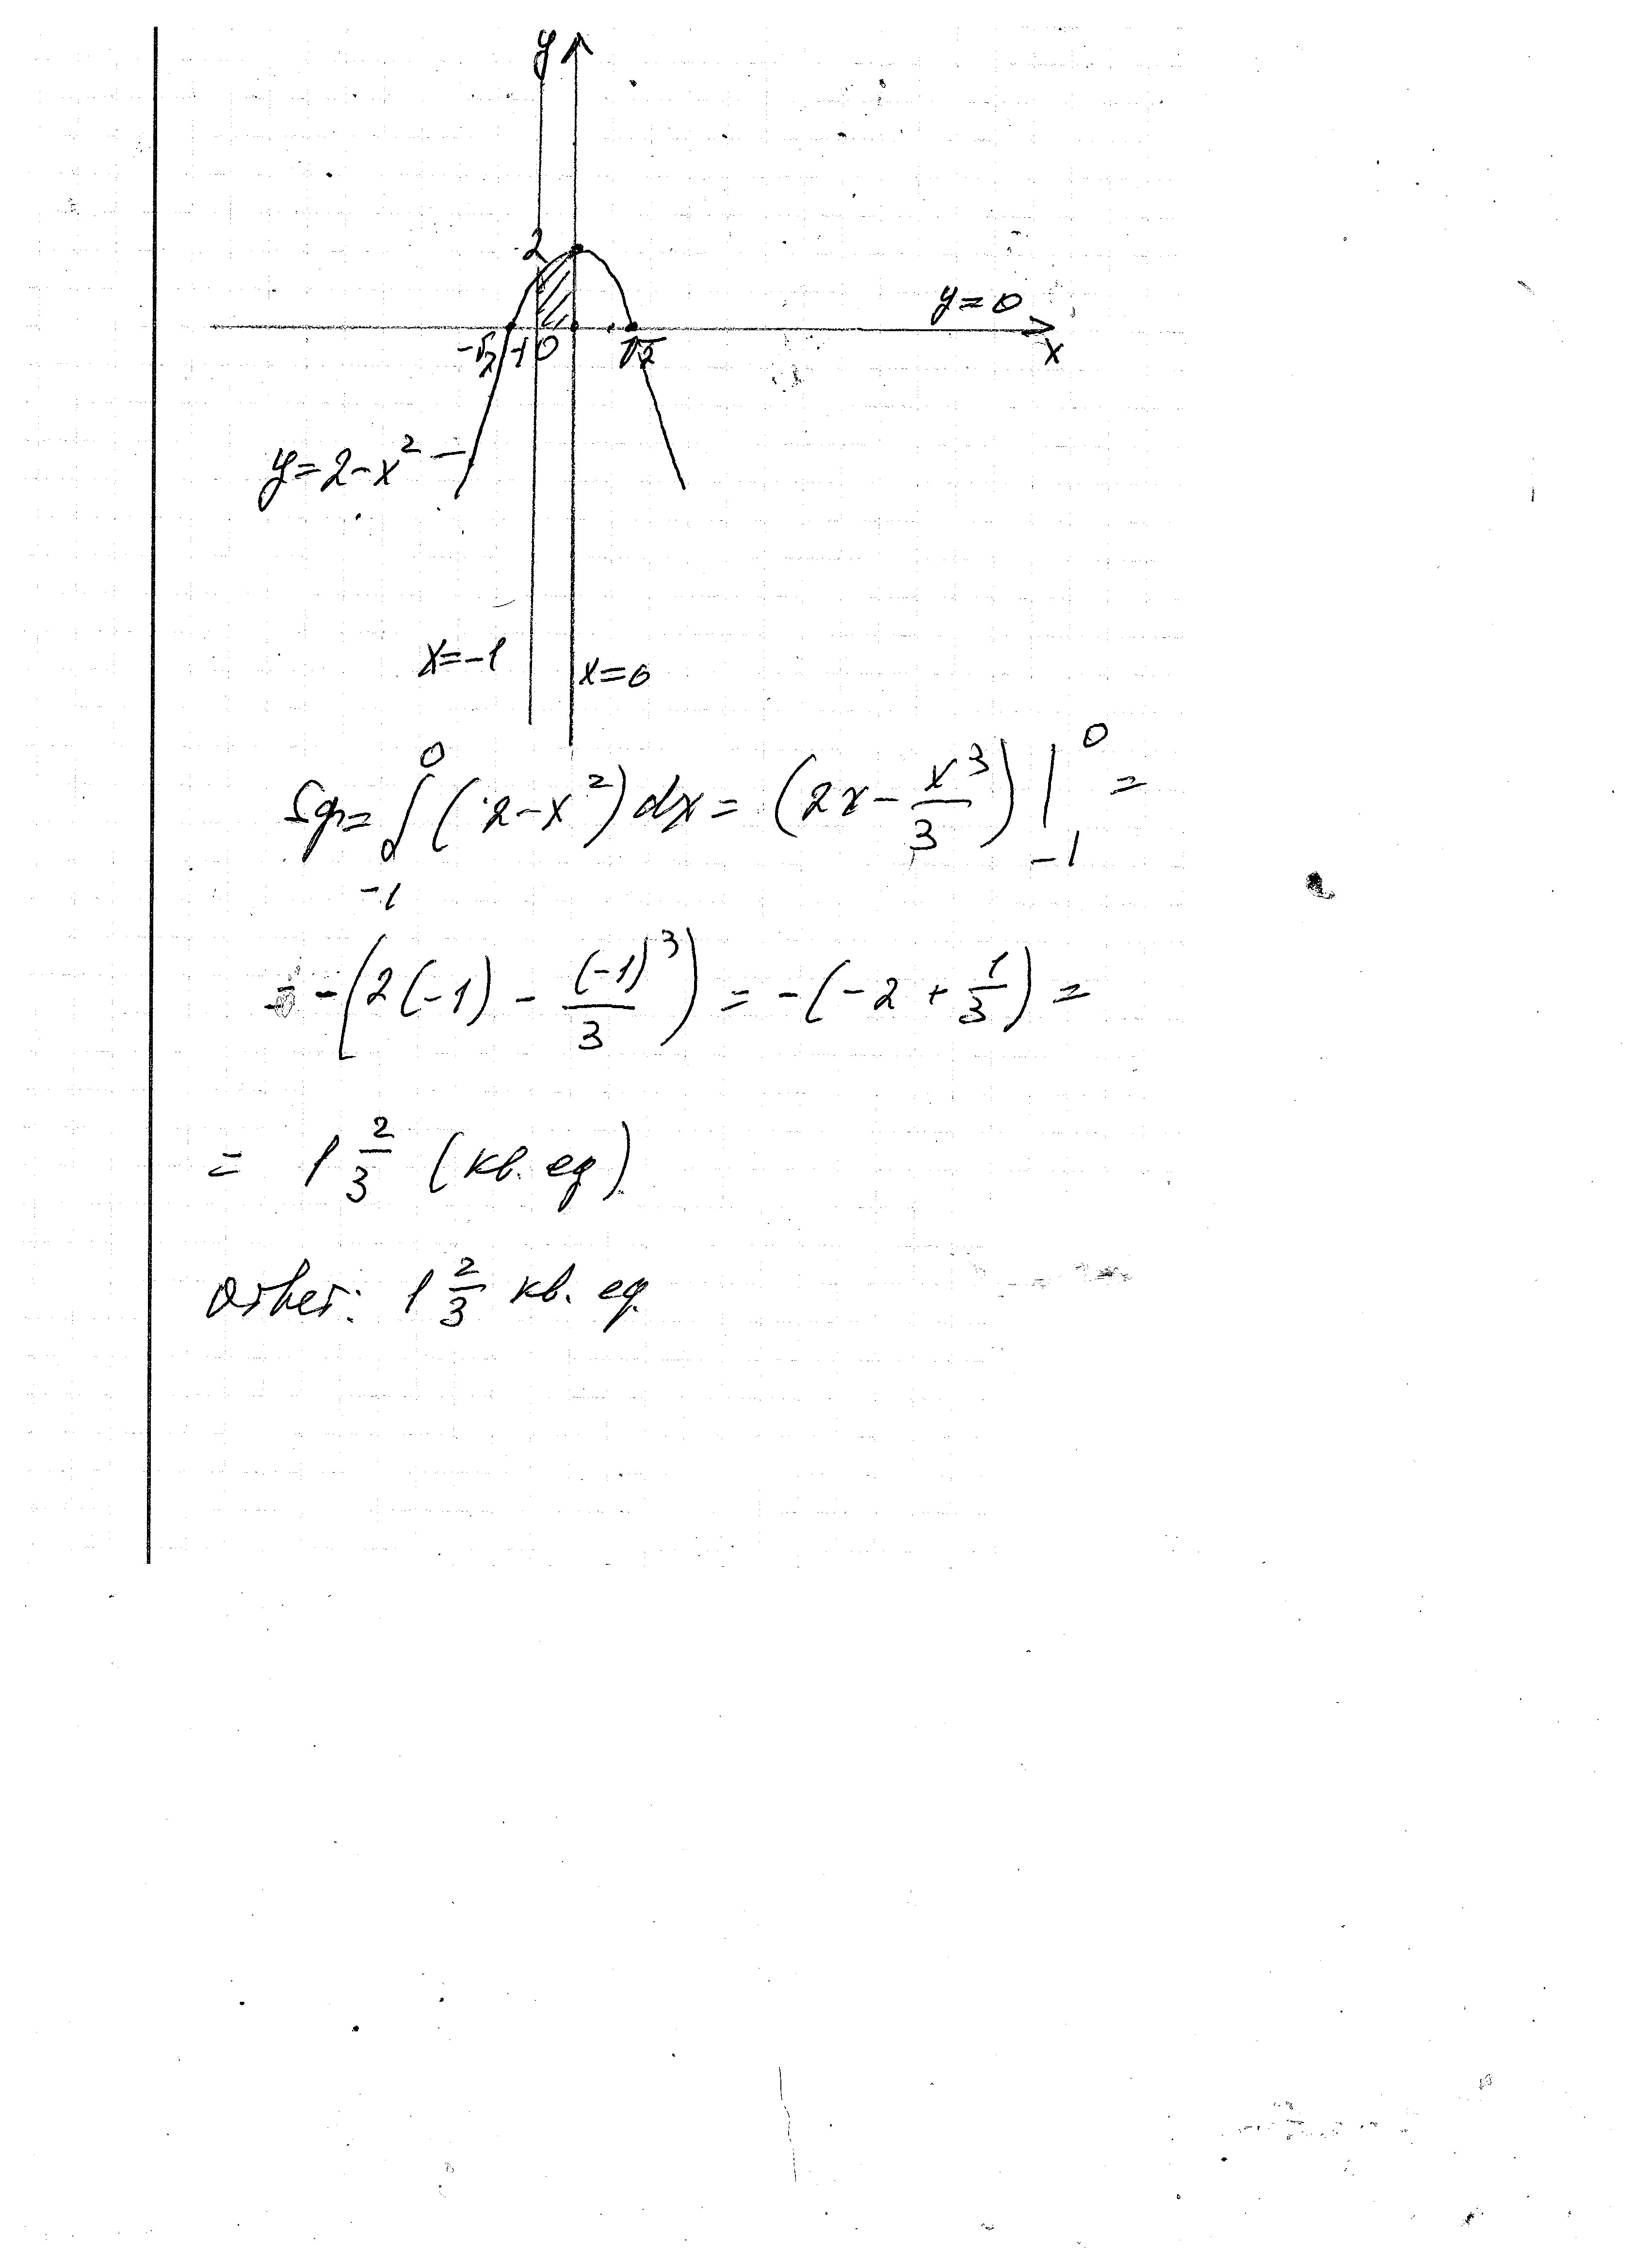 y
2
y=0
-√2 -1 0 √2 x
y=2-x²
x=-1 x=0
Sф=∫₋₁⁰(2-x²)dx=(2x-x³/3)|₋₁⁰=
=-(2(-1)-(-1)³/3)=-(-2+1/3)=
=1 2/3 (кв. ед)
Ответ: 1 2/3 кв. ед.